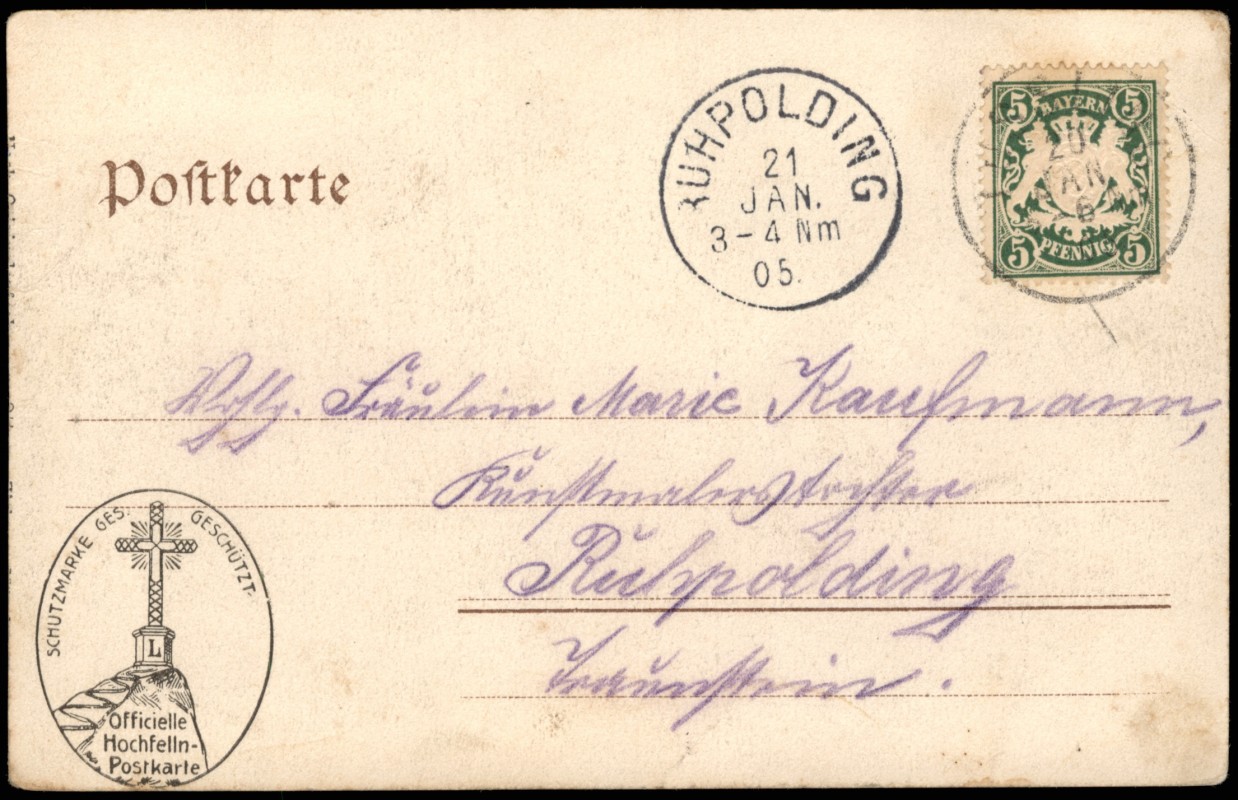 Postkarte
RUHPOLDING
21
JAN.
3-4 Nm
05.
5 BAYERN 5
20
JAN
6
5 PFENNIG 5
Fräulein Marie Kaufmann,
Kunstmalerstochter
Ruhpolding
Traunstein.
SCHUTZMARKE GES. GESCHÜTZT.
L
Officielle
Hochfelln-
Postkarte